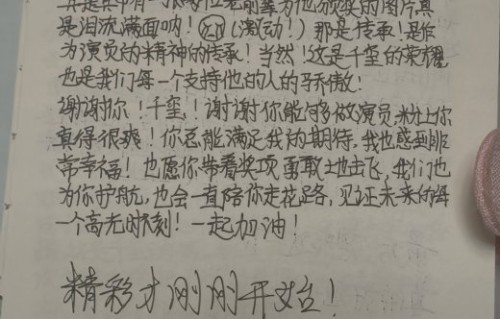 真是其中有一张每位老前辈为他颁奖的图片真
是泪流满面呐！（激动！）那是传承！是作
为演员的精神的传承！当然！这是千玺的荣耀
也是我们每一个支持他的人的骄傲！
谢谢你！千玺！谢谢你能够做演员，粉上你
真得很爽！你总能满足我的期待，我也感到非
常幸福！也愿你带着奖项勇敢地去飞，我们也
为你护航，也会一直陪你走花路，见证未来的每
一个高光时刻！一起加油！
精彩才刚刚开始！